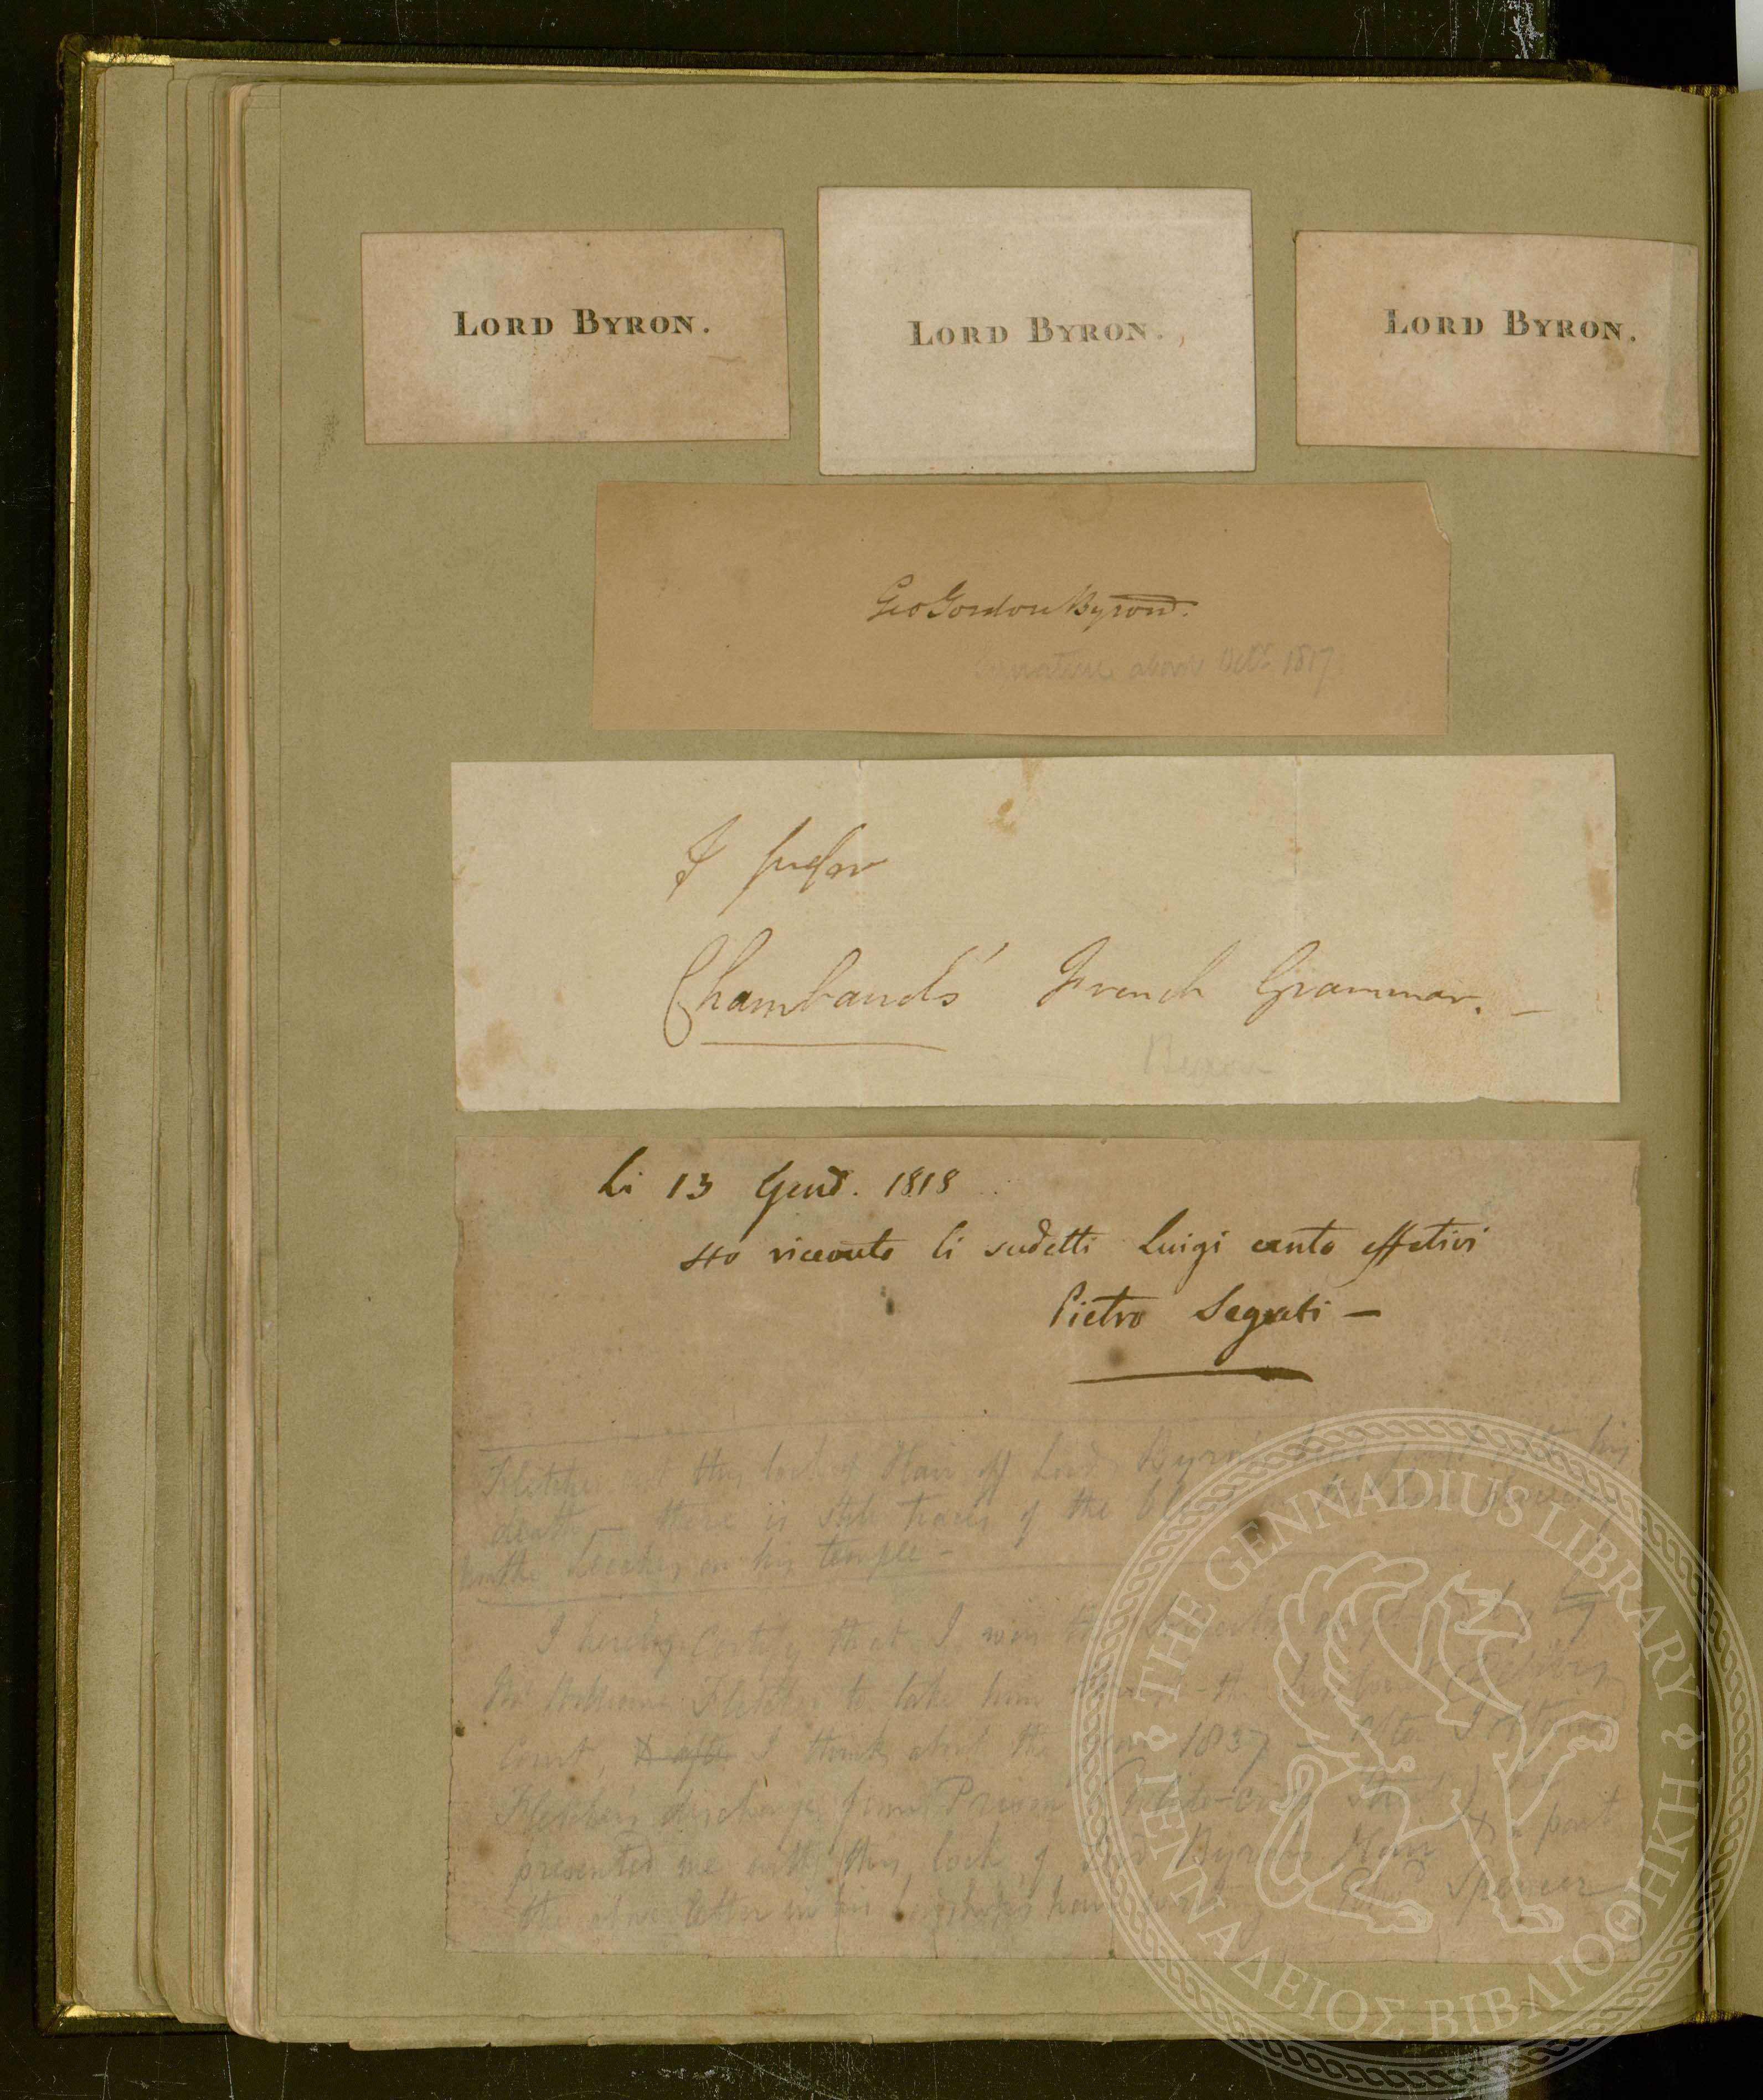 LORD BYRON.
LORD BYRON.,
LORD BYRON.
Geo Gordon Byron.
Signature about 1807.
I prefer
Chambaud's French Grammar. —
Byron
Li 13 Gen. 1818
Ho riceouto li sudetti Luigi cento effetivi
Pietro Segati —
Fletcher cut this lock of Hair off Lord Byron's his
death — there is still traces of the
the leeches on his temple —
I hereby Certify that I was the
William Fletcher to take him the
Court, & after I think about the year 1837 — after I
Fletcher's discharge from Prison
presented me with this lock of Lord Byrons Hair & a part
the above letter in his Lordship's hand writing Spencer
THE GENNADIUS LIBRARY &
ΓΕΝΝΑΔΕΙΟΣ ΒΙΒΛΙΟΘΗΚΗ &